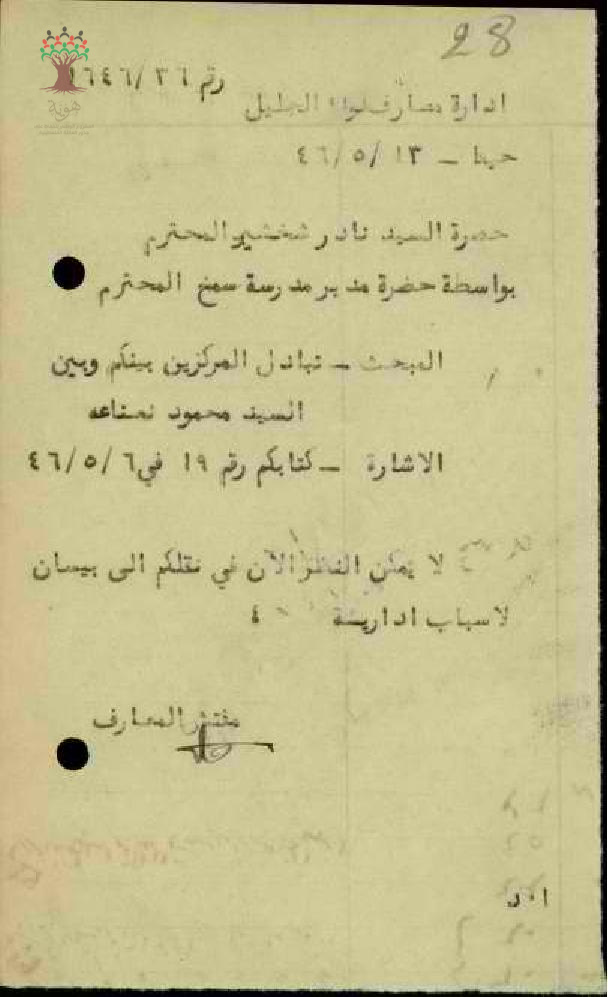 28
هوية
رقم ٣٦/١٦٤٦
ادارة معارف لواء الجليل
حيفا – ١٣/٥/٤٦
حضرة السيد نادر شخشير المحترم
بواسطة حضرة مدير مدرسة سمخ المحترم
المبحث – تبادل المركزين بينكم وبين
السيد محمود نعناعه
الاشارة – كتابكم رقم ١٩ في ٦/٥/٤٦
لا يمكن النظر الآن في نقلكم الى بيسان
لاسباب ادارية
مفتش المعارف